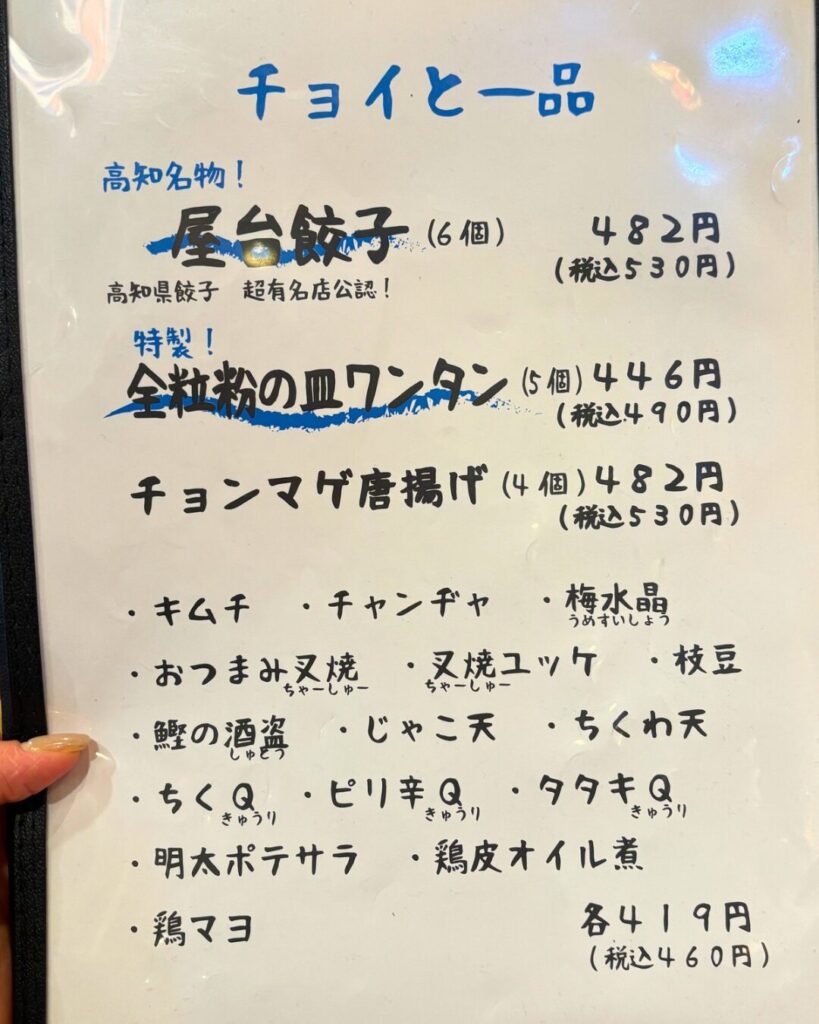 チョイと一品
高知名物！
屋台餃子(6個) 482円
(税込530円)
高知県餃子 超有名店公認！
特製！
全粒粉の皿ワンタン(5個)446円
(税込490円)
チョンマゲ唐揚げ(4個)482円
(税込530円)
・キムチ ・チャンヂャ ・梅水晶
うめすいしょう
・おつまみ叉焼 ・叉焼ユッケ ・枝豆
ちゃーしゅー ちゃーしゅー
・鰹の酒盗 ・じゃこ天 ・ちくわ天
しゅとう
・ちくQ ・ピリ辛Q ・タタキQ
きゅうり きゅうり きゅうり
・明太ポテサラ ・鶏皮オイル煮
・鶏マヨ 各419円
(税込460円)